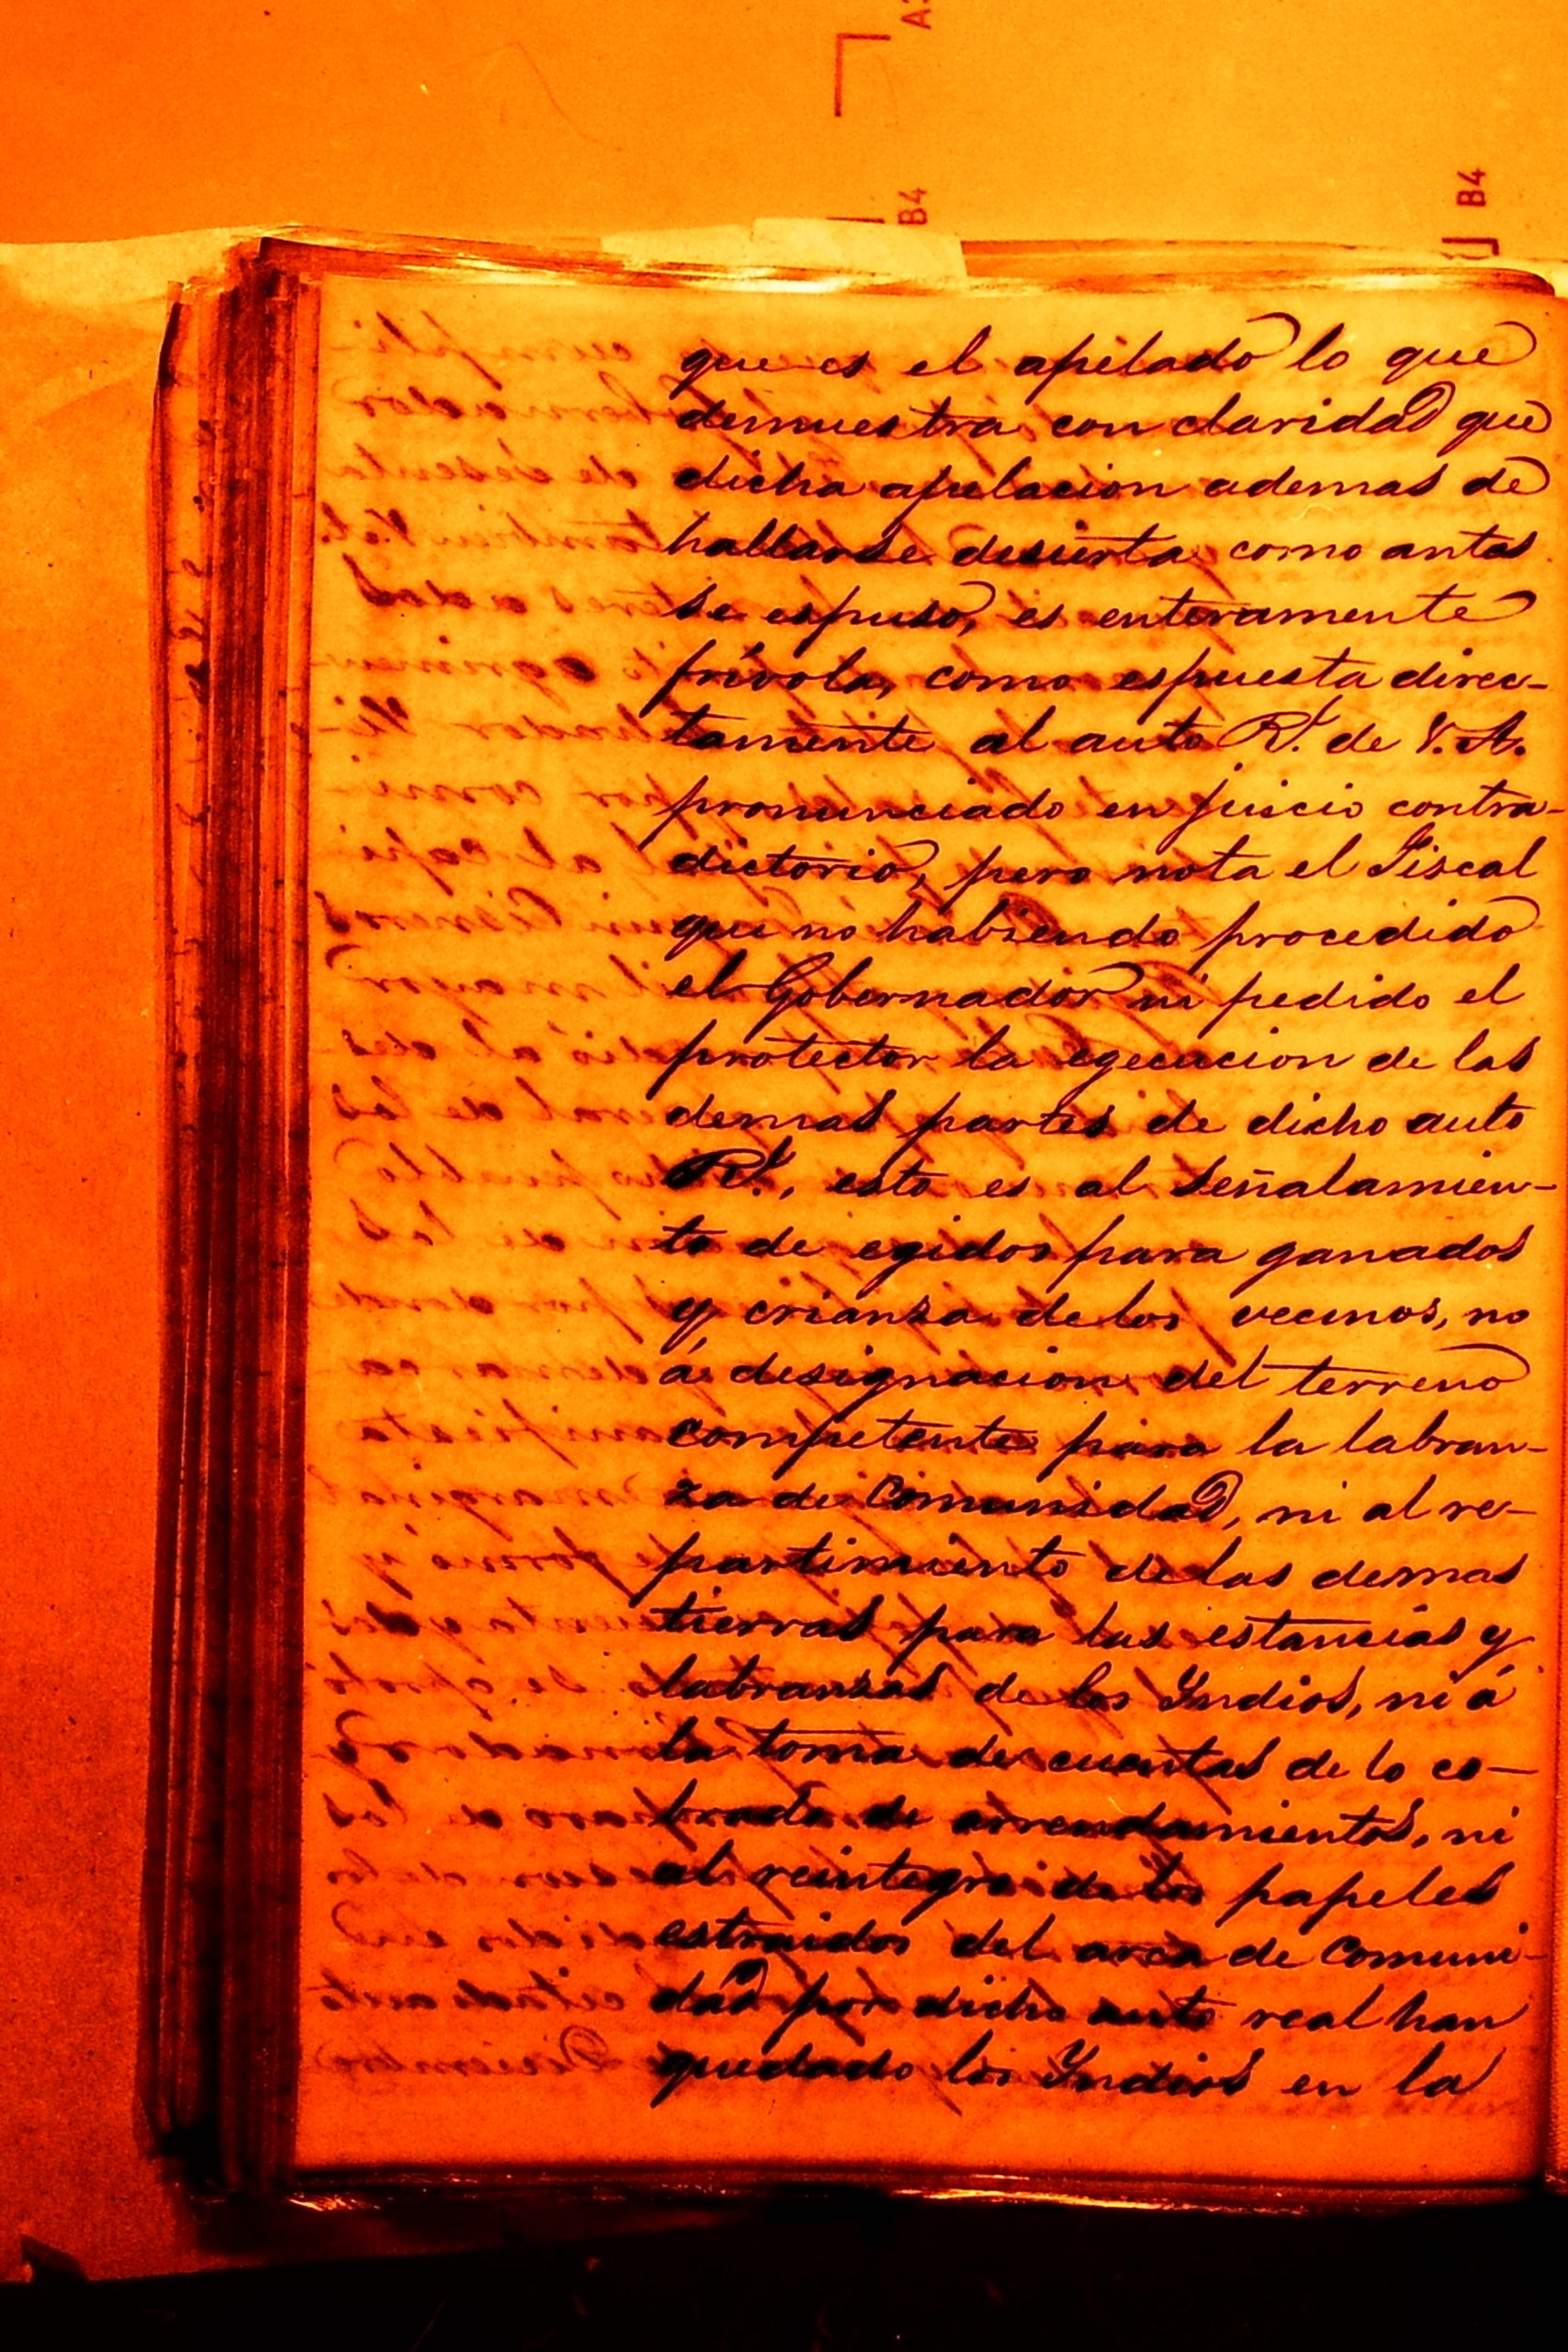 A3
B4
B4
que es el apelado lo que
demuestra con claridad que
dicha apelacion ademas de
hallarse desierta como antes
se espuso, es enteramente
frívola, como espuesta direc-
tamente al auto Rl. de V. A.
pronunciado en juicio contra-
dictorio, pero nota el Fiscal
que no habiendo procedido
el Gobernador ni pedido el
protector la egecucion de las
demas partes de dicho auto
Rl., esto es al señalamien-
to de egidos para ganados
y crianza de los vecinos, no
á designacion del terreno
competente para la labran-
za de Comunidad, ni al re-
partimiento de las demas
tierras para las estancias y
labranzas de los Yndios, ni á
la toma de cuentas de lo co-
brado de arrendamientos, ni
al reintegro de los papeles
estraidos del arca de Comuni-
dad por dicho auto real han
quedado los Yndios en la